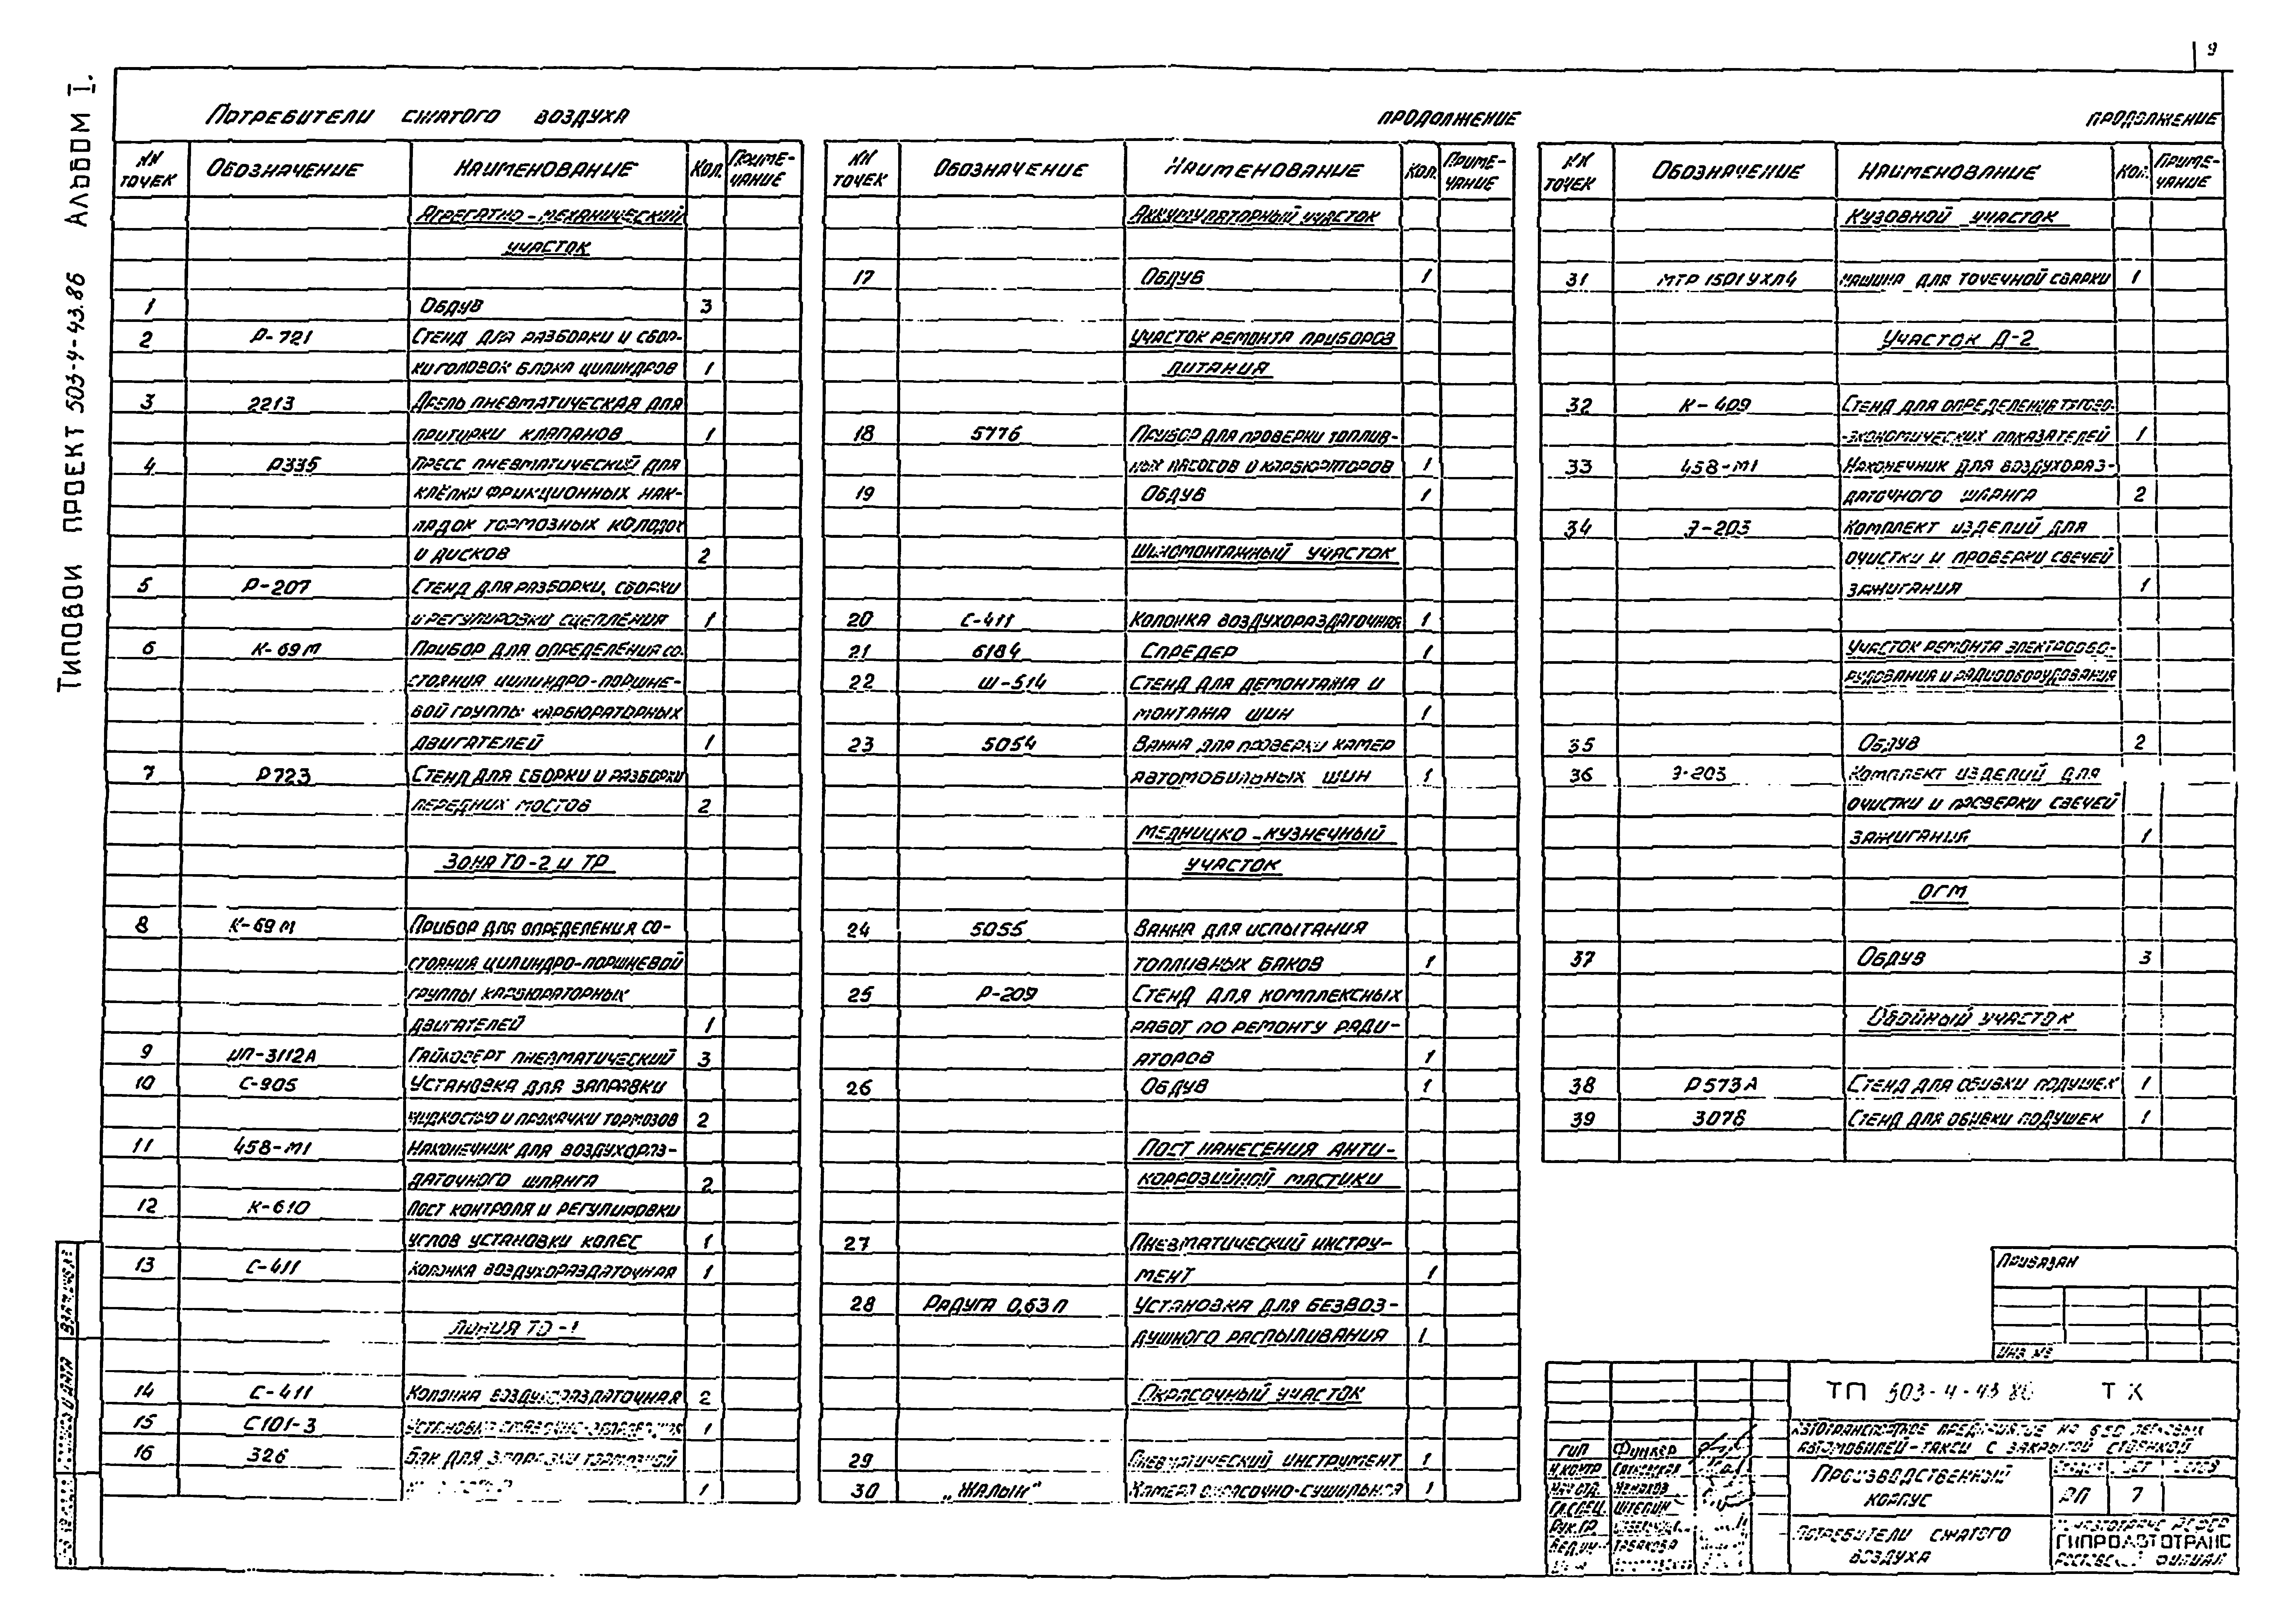 9
Типовой проект 503-4-43.86 Альбом I.
Потребители сжатого воздуха
NN точек Обозначение Наименование Кол. Приме-чание
Агрегатно-механический
участок
1 Обдув 3
2 Р-721 Стенд для разборки и сбор-
ки головок блока цилиндров 1
3 2213 Дрель пневматическая для
притирки клапанов 1
4 Р335 Пресс пневматический для
клёпки фрикционных нак-
ладок тормозных колодок
и дисков 2
5 Р-207 Стенд для разборки, сборки
и регулировки сцепления 1
6 К-69М Прибор для определения со-
стояния цилиндро-поршне-
вой группы карбюраторных
двигателей 1
7 Р723 Стенд для сборки и разборки
передних мостов 2
Зона ТО-2 и ТР
8 К-69М Прибор для определения со-
стояния цилиндро-поршневой
группы карбюраторных
двигателей 1
9 ИП-3112А Гайковерт пневматический 3
10 С-905 Установка для заправки
жидкостью и прокачки тормозов 2
11 458-М1 Наконечник для воздухораз-
даточного шланга 2
12 К-610 Пост контроля и регулировки
углов установки колес 1
13 С-411 Колонка воздухораздаточная 1
Линия ТО-1
14 С-411 Колонка воздухораздаточная 2
15 С101-3 Установка 1
16 326 Бак для заправки тормозной
1
продолжение
NN точек Обозначение Наименование Кол. Приме-чание
Аккумуляторный участок
17 Обдув 1
Участок ремонта приборов
питания
18 5776 Прибор для проверки топлив-
ных насосов и карбюраторов 1
19 Обдув 1
Шиномонтажный участок
20 С-411 Колонка воздухораздаточная 1
21 6184 Спредер 1
22 Ш-514 Стенд для демонтажа и
монтажа шин 1
23 5054 Ванна для проверки камер
автомобильных шин 1
Медницко-кузнечный
участок
24 5055 Ванна для испытания
топливных баков 1
25 Р-209 Стенд для комплексных
работ по ремонту ради-
аторов 1
26 Обдув 1
Пост нанесения анти-
коррозийной мастики
27 Пневматический инстру-
мент 1
28 Радуга 0,63П Установка для безвоз-
душного распыливания 1
Окрасочный участок
29 Пневматический инструмент 1
30 „Жалын" Камера окрасочно-сушильная 1
продолжение
NN точек Обозначение Наименование Кол. Приме-чание
Кузовной участок
31 МТР 1501 УХЛ4 Машина для точечной сварки 1
Участок Д-2
32 К-409 Стенд для определения тягово-
-экономических показателей 1
33 458-М1 Наконечник для воздухораз-
даточного шланга 2
34 Э-203 Комплект изделий для
очистки и проверки свечей
зажигания 1
Участок ремонта электрообо-
рудования и радиооборудования
35 Обдув 2
36 Э-203 Комплект изделий для
очистки и проверки свечей
зажигания 1
ОГМ
37 Обдув 3
Обойный участок
38 Р573А Стенд для обивки подушек 1
39 3078 Стенд для обивки подушек 1
Привязан
Инв №
ТП 503-4-43.86 ТХ
Автотранспортное предприятие на 650 легковых
автомобилей-такси с закрытой стоянкой
ГИП Функер
Н.контр
Нач.отд.
Гл.спец. Штепин
Рук.гр.
Вед.инж.
Производственный
корпус
РП 7
Потребители сжатого
воздуха
Гипроавтотранс
Ростовский филиал
Взам.инв.№
Подпись и дата